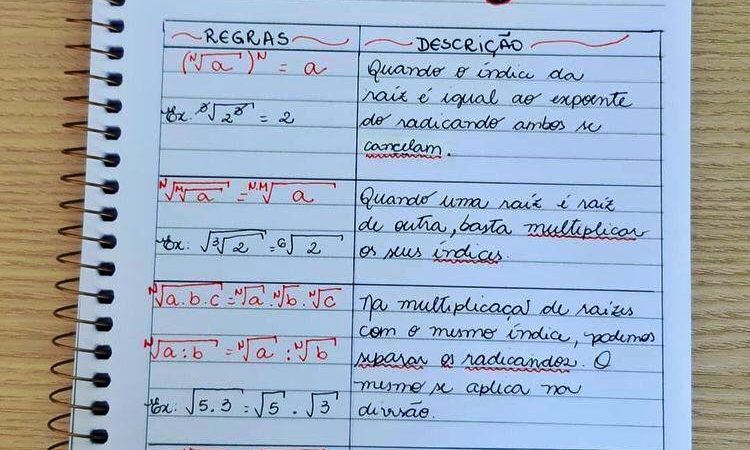 REGRAS DESCRIÇÃO
(ᴺ√a)ᴺ = a
Ex: ³√2³ = 2
Quando o índice da
raiz é igual ao expoente
do radicando ambos se
cancelam.
ᴺ√ᴹ√a = ᴺ·ᴹ√a
Ex: √³√2 = ⁶√2
Quando uma raiz é raiz
de outra, basta multiplicar
os seus índices.
ᴺ√a.b.c = ᴺ√a . ᴺ√b . ᴺ√c
ᴺ√a:b = ᴺ√a : ᴺ√b
Ex: √5.3 = √5 . √3
Na multiplicaçaõ de raizes
com o mesmo índice, podemos
separar os radicandos. O
mesmo se aplica na
divisão.